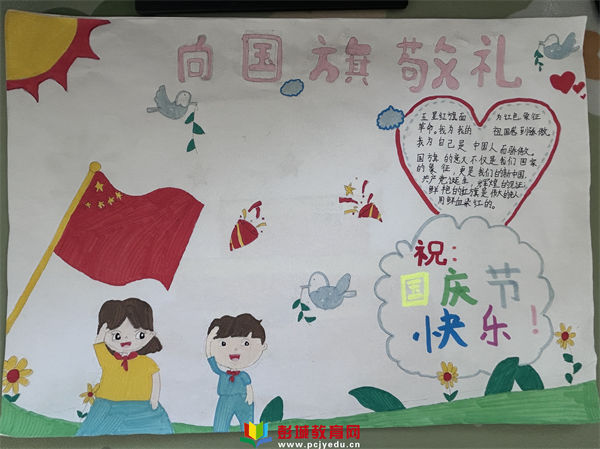 向国旗敬礼
五星红旗面 为红色象征
革命。我为我的 祖国感到骄傲,
我为自己是中国人而骄傲。
国旗的意义不仅是我们国家
的象征,更是我们的新中国,
共产党诞生,辉煌的见证,
鲜艳的红旗是伟大的人
用鲜血染红的。
祝:
国庆节
快乐!
彭城教育网
www.pcjyedu.cn